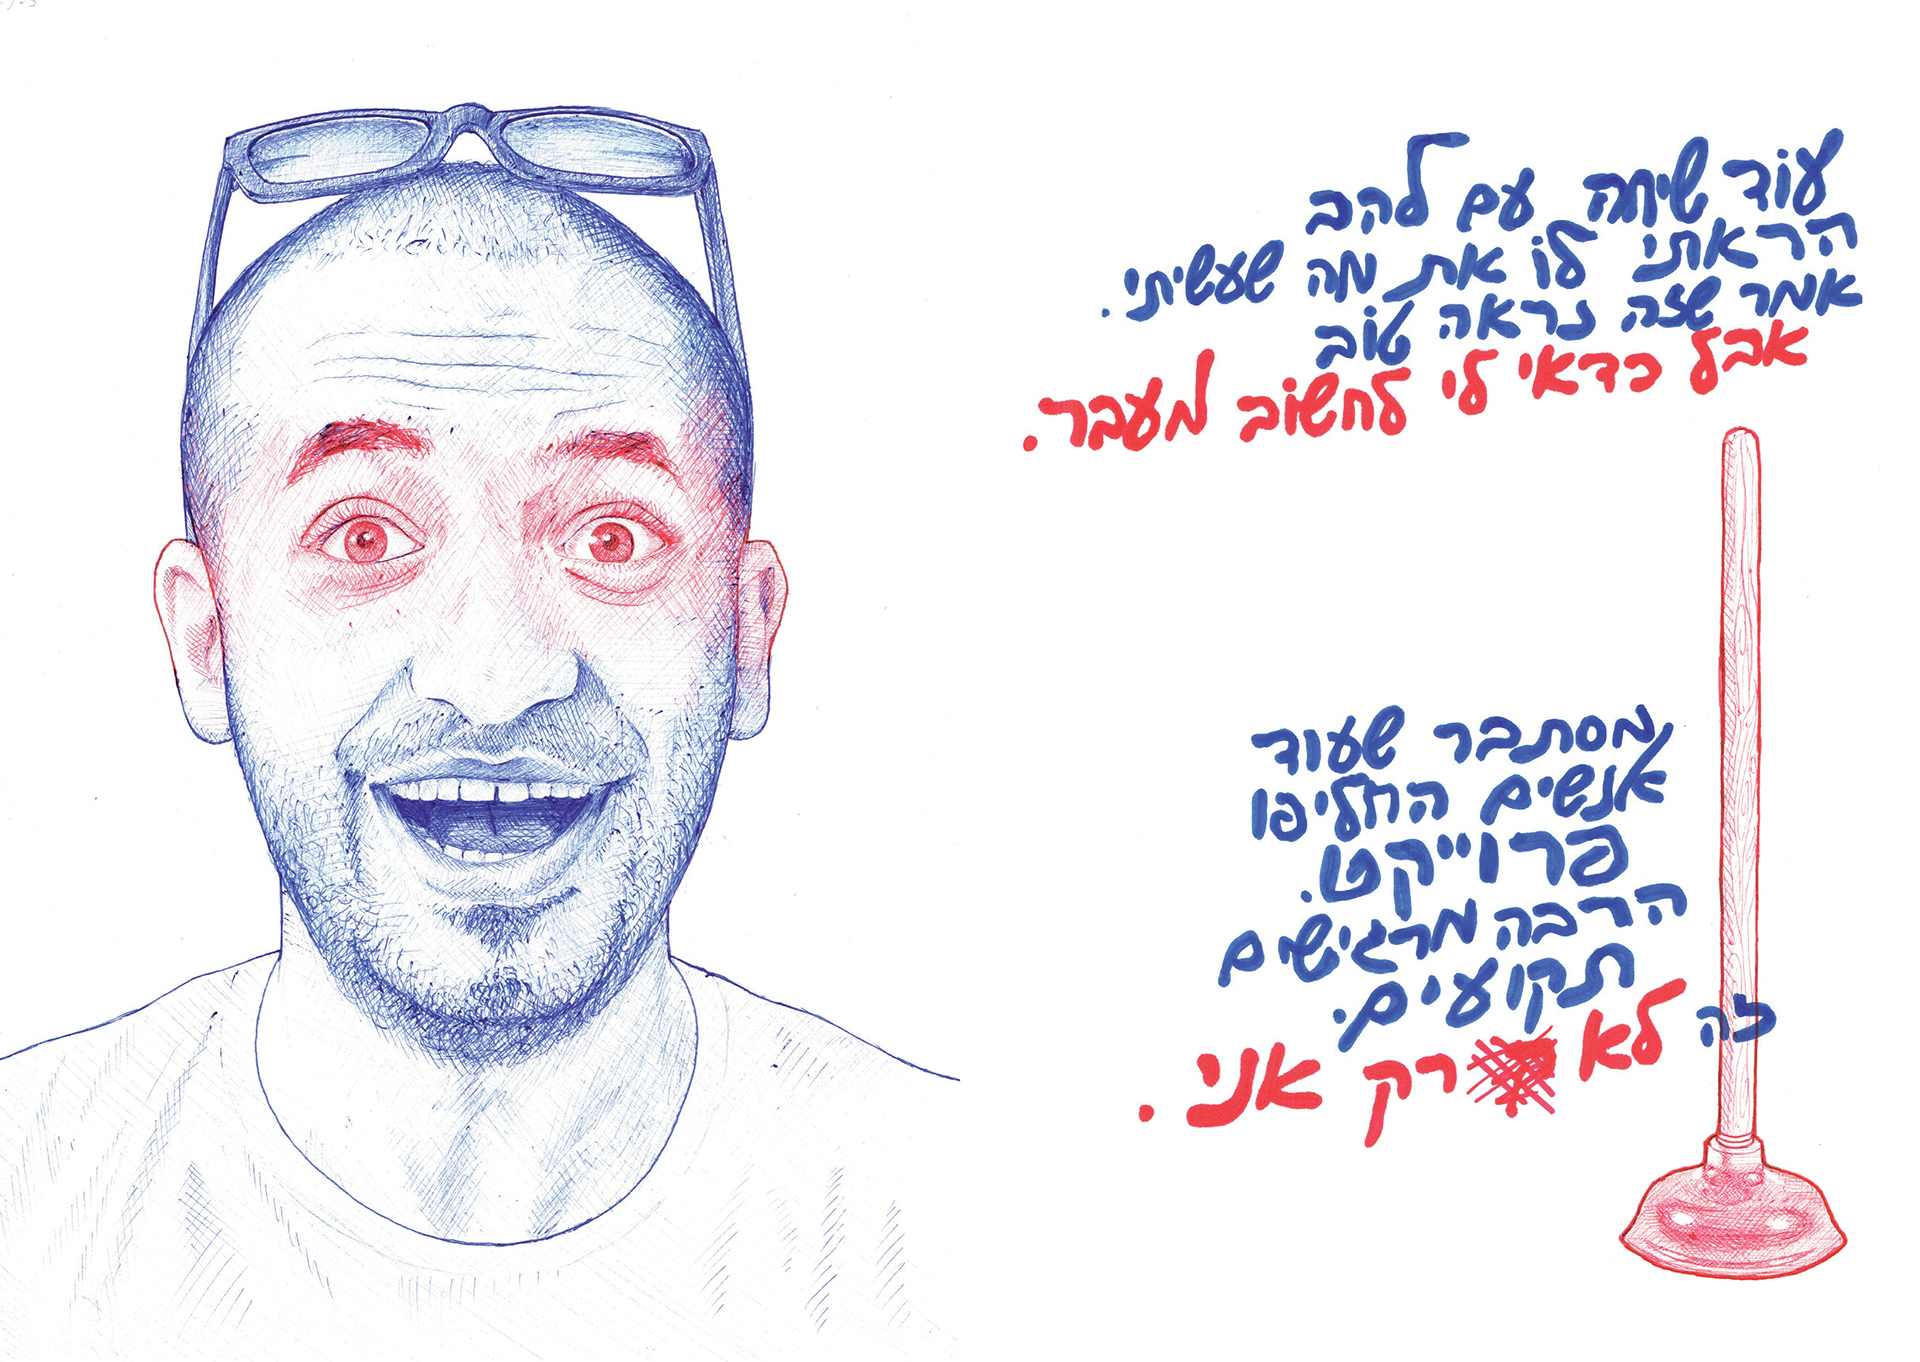 עוד שיחה עם להב
הראתי לו את מה שעשיתי.
אמר שזה נראה טוב
אבל כדאי לי לחשוב מעבר.
מסתבר שעוד
אנשים החליפו
פרוייקט.
הרבה מרגישים
תקועים.
זה לא
רק אני.